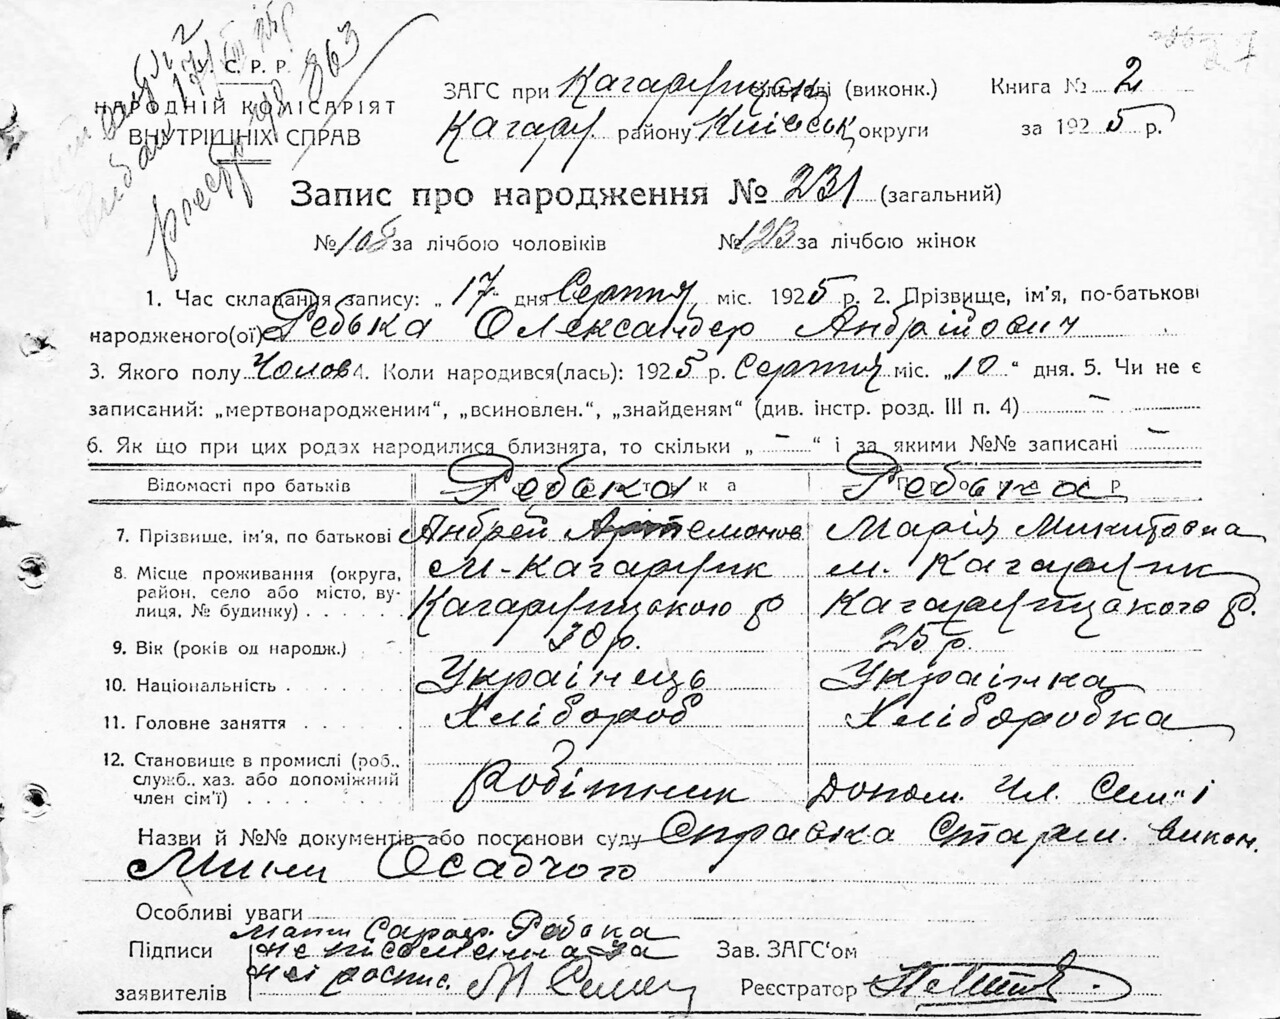 У. С. Р. Р.
НАРОДНІЙ КОМІСАРІЯТ
ВНУТРІШНІХ СПРАВ
863
ЗАГС при Кагарлицьк (виконк.)
Кагарл. району Київськ округи
Книга № 2
за 1925 р.
Запис про народження № 231 (загальний)
№ 108 за лічбою чоловіків № 123 за лічбою жінок
1. Час складання запису: „17" дня Серпня міс. 1925 р. 2. Прізвище, ім'я, по-батькові
народженого(ої) Редька Олександер Андрійович
3. Якого полу Чолов 4. Коли народився(лась): 1925 р. Серпня міс. „10" дня. 5. Чи не є
записаний: „мертвонародженим", „всиновлен.", „знайденям" (див. інстр. розд. III п. 4) –
6. Як що при цих родах народилися близнята, то скільки „–" і за якими №№ записані –
Відомості про батьків Редька Редька
7. Прізвище, ім'я, по батькові Андрей Артемонов Марія Микитовна
8. Місце проживання (округа, район, село або місто, вулиця, № будинку) м-Кагарлик м. Кагарлик
Кагарлицького р Кагарлицького р.
9. Вік (років од народж.) 30 р. 25 р.
10. Національність Українець Українка
11. Головне заняття Хлібороб Хліборобка
12. Становище в промислі (роб., служб., хаз. або допоміжний член сім'ї) Робітник Допом. Чл. Сем"ї
Назви й №№ документів або постанови суду Справка Старш. викон.
Осадчого
Особливі уваги
Мати Редька
Підписи не писменна за
неї роспис.
заявителів
Зав. ЗАГС'ом
Реєстратор